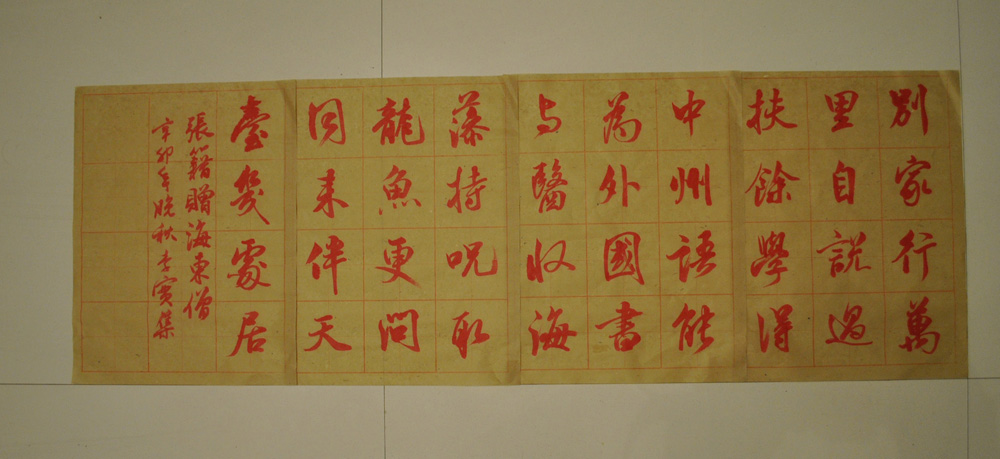 別家行萬
里自説過
扶餘學得
中州語能
為外國書
与醫收海
藻持呪取
龍魚更問
同来伴天
臺幾處居
張籍贈海東僧
辛卯年晚秋李賓集